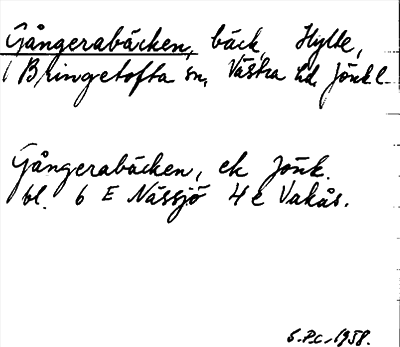 Gångerabäcken, bäck, Hylte,
i Bringetofta sn, Västra hd Jönk l.
Gångerabäcken, ek Jönk.
bl. 6 E Nässjö 4 e Vakås.
S.P.C. 1958.